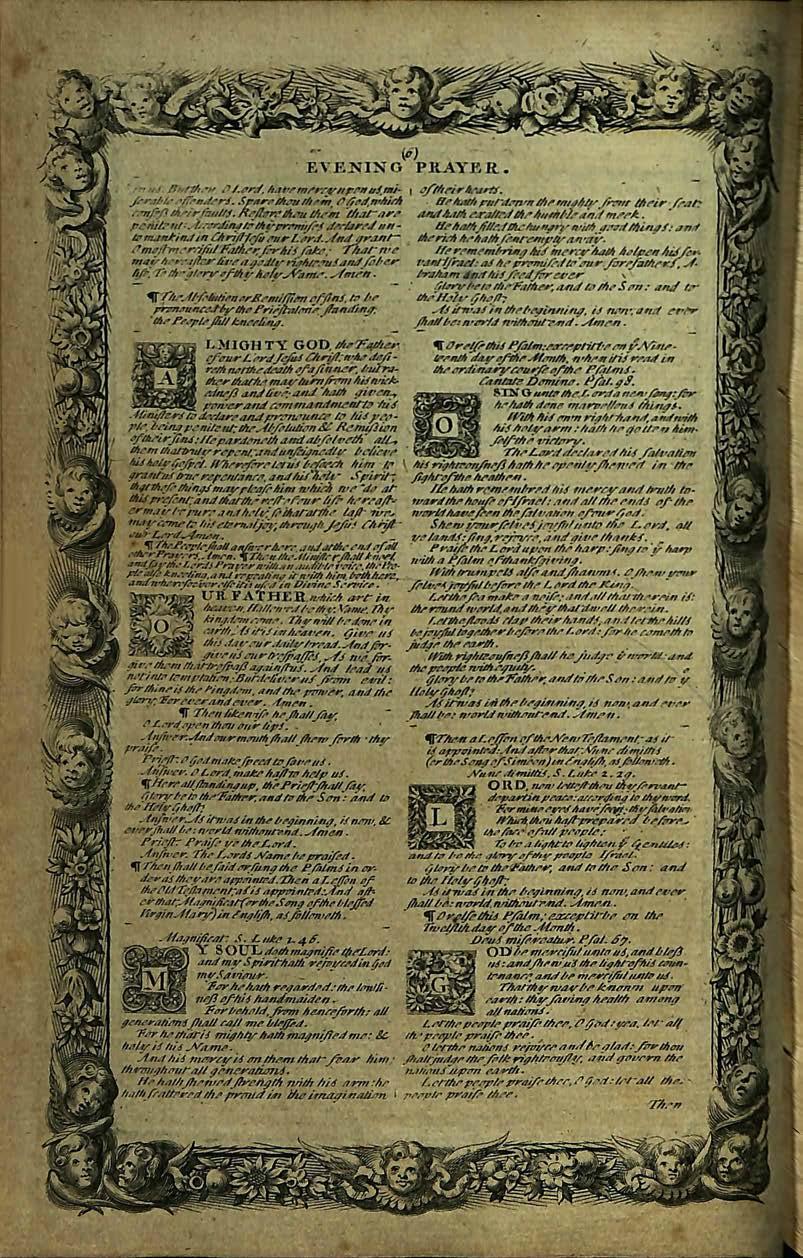 (6)
EVENING PRAYER.
in us. But thou O Lord, have mercy upon us, mi-
serable offenders. Spare thou them, O God, which
confess their faults. Restore thou them that are
penitent: According to thy promises declared un-
to mankind in Christ Jesu our Lord. And grant
O most merciful Father, for his sake; That we
may hereafter live a godly righteous and sober
life, To the glory of thy holy Name. Amen.
¶ The Absolution or Remission of sins, to be
pronounced by the Priest alone, standing;
the People still kneeling.
ALMIGHTY GOD, the Father
of our Lord Jesus Christ, who desi-
reth not the death of a sinner, but ra-
ther that he may turn from his wick-
edness and live; and hath given
power and commandment to his
Ministers to declare and pronounce to his peo-
ple, being penitent, the Absolution & Remission
of their sins: He pardoneth and absolveth all
them that truly repent, and unfeignedly believe
his holy Gospel. Wherefore let us beseech him to
grant us true repentance, and his holy Spirit;
that those things may please him which we do at
this present, and that the rest of our life hereaft-
er may be pure and holy, so that at the last we
may come to his eternal joy, through Jesus Christ
our Lord. Amen.
¶ The People shall answer here, and at the end of all
other Prayers, Amen. ¶ Then the Minister shall kneel,
and say the Lords Prayer with an audible voice, the Peo-
ple also kneeling, and repeating it with him, both here,
and wheresoever else it is used in Divine Service.
OUR FATHER, which art in
heaven, Hallowed be thy Name. Thy
kingdom come. Thy will be done in
earth, As it is in heaven. Give us
this day our daily bread. And for-
give us our trespasses, As we for-
give them that trespass against us. And lead us
not into temptation: But deliver us from evil:
for thine is the kingdom, and the power, and the
glory, For ever and ever. Amen.
¶ Then likewise he shall say,
O Lord, open thou our lips.
Answer. And our mouth shall shew forth thy
praise.
Priest. O God make speed to save us.
Answer. O Lord, make hast to help us.
¶ Here all standing up, the Priest shall say,
Glory be to the Father, and to the Son: and to
the Holy Ghost;
Answer. As it was in the beginning, is now, &
ever shall be: world without end. Amen.
Priest. Praise ye the Lord.
Answer. The Lords Name be praised.
¶ Then shall be said or sung the Psalms in or-
der as they are appointed. Then a Lesson of
the Old Testament, as is appointed: And aft-
er that, Magnificat (or the Song of the blessed
Virgin Mary) in English, as followeth.
Magnificat. S. Luke 1. 46.
MY SOUL doth magnifie the Lord:
and my Spirit hath rejoyced in God
my Saviour.
For he hath regarded: the lowli-
ness of his handmaiden.
For behold, from henceforth: all
generations shall call me blessed.
For he that is mighty hath magnified me: &
holy is his Name.
And his mercy is on them that fear him:
throughout all generations.
He hath shewed strength with his arm: he
hath scattered the proud in the imagination
of their hearts.
He hath put down the mighty from their seat:
and hath exalted the humble and meek.
He hath filled the hungry with good things: and
the rich he hath sent empty away.
He remembring his mercy hath holpen his ser-
vant Israel: as he promised to our forefathers, A-
braham and his seed for ever
Glory be to the Father, and to the Son: and to
the Holy Ghost;
As it was in the beginning, is now, and ever
shall be: world without end. Amen.
¶ Or else this Psalm: except it be on ye Nine-
teenth day of the Month, when it is read in
the ordinary course of the Psalms.
Cantate Domino. Psal. 98.
O SING unto the Lord a new song: for
he hath done marvellous things.
With his own right hand, and with
his holy arm: hath he gotten him-
self the victory.
The Lord declared his salvation
his righteousness hath he openly shewed in the
sight of the heathen.
He hath remembred his mercy and truth to-
ward the house of Israel: and all the ends of the
world have seen the salvation of our God.
Shew your selves joyful unto the Lord, all
ye lands: sing, rejoyce, and give thanks.
Praise the Lord upon the harp: sing to ye harp
with a Psalm of thanksgiving.
With trumpets also and shawms: O shew your
selves joyful before the Lord the King.
Let the sea make a noise, and all that therein is:
the round world, and they that dwell therein.
Let the floods clap their hands, and let the hills
be joyful together before the Lord: for he cometh to
judge the earth.
With righteousness shall he judge ye world: and
the people with equity.
Glory be to the Father, and to the Son: and to ye
Holy Ghost;
As it was in the beginning, is now, and ever
shall be: world without end. Amen.
¶ Then a Lesson of the New Testament, as it
is appointed: And after that, Nunc dimittis
(or the Song of Simeon) in English, as followeth.
Nunc dimittis, S. Luke 2. 29.
LORD, now lettest thou thy servant
depart in peace: according to thy word.
For mine eyes have seen: thy salvation
Which thou hast prepared before
the face of all people;
To be a light to lighten ye Gentiles:
and to be the glory of thy people Israel.
Glory be to the Father, and to the Son: and
to the Holy Ghost;
As it was in the beginning, is now, and ever
shall be: world, without end. Amen.
¶ Or else this Psalm; except it be on the
Twelfth day of the Month.
Deus misereatur. Psal. 67.
GOD be merciful unto us, and bless
us: and shew us the light of his coun-
tenance, and be merciful unto us.
That thy way be known upon
earth: thy saving health among
all nations.
Let the people praise thee, O God: yea, let all
the people praise thee.
O let the nations rejoyce and be glad: for thou
shalt judge the folk righteously, and govern the
nations upon earth.
Let the people praise thee, O God: let all the
people praise thee.
Then